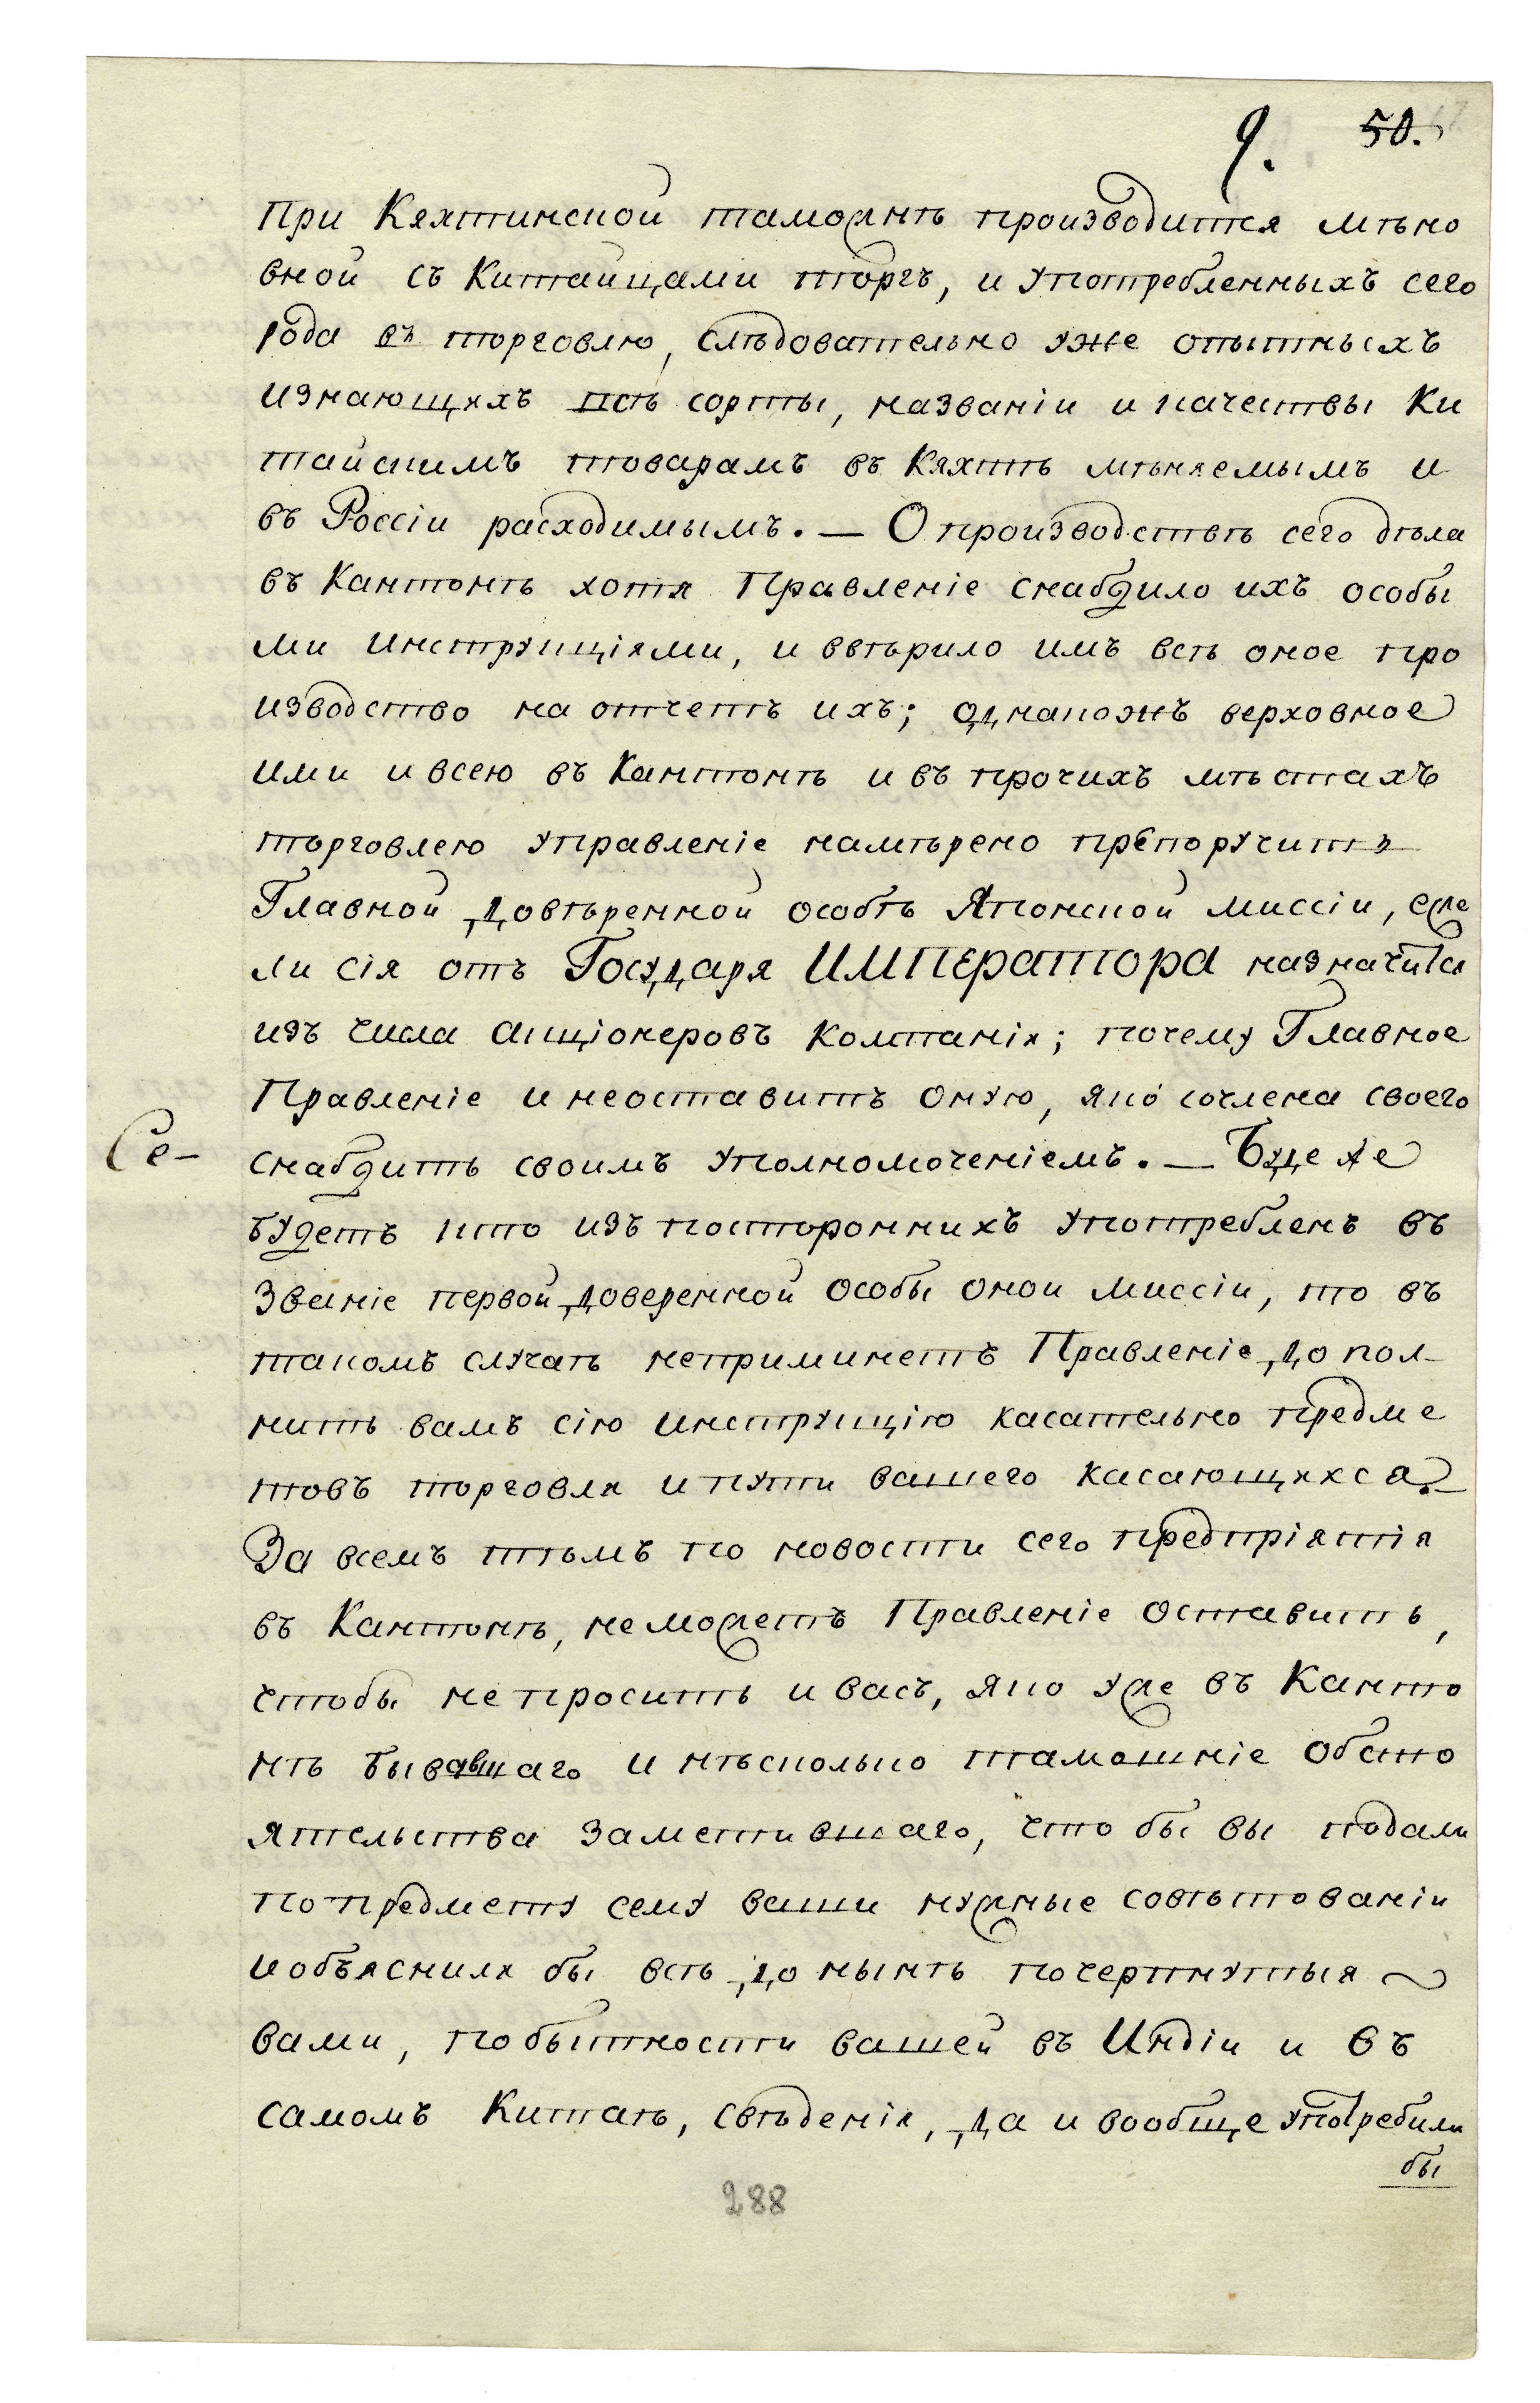 9. 50.
При Кяхтинской таможнѣ производится мѣно
вной съ Китайцами торгъ, и употребленныхъ сего
рода въ торговлю, слѣдовательно уже опытныхъ
изнающихъ всѣ сорты, названіи и качествы Ки
тайскимъ товарамъ въ Кяхтѣ мѣняемымъ и
въ Россіи расходимымъ. — О производствѣ сего дѣла
въ Кантонѣ хотя Правленіе снабдило ихъ особы
ми инструкціями, и ввѣрило имъ всѣ оное про
изводство на отчетъ ихъ; однакожъ верховное
ими и всею въ Кантонѣ и въ прочихъ мѣстахъ
торговлею управленіе намѣрено препоручить
Главной довѣренной особѣ Японской миссіи, еже
ли сія отъ Государя Императора назначится
изъ числа акціонеровъ Компаніи; почему Главное
Правленіе и неоставитъ оную, яко сочлена своего
Се-
снабдить своимъ уполномоченіемъ. — Буде же
будетъ кто изъ постороннихъ употребленъ въ
званіе первой доверенной особы оной миссіи, то въ
такомъ случаѣ непримин­етъ Правленіе допол-
нить вамъ сію инструкцію касательно предме
товъ торговли и пути вашего касающихся. —
За всемъ тѣмъ по новости сего предпріятія
въ Кантонѣ, неможетъ Правленіе оставить,
чтобы не просить и васъ, яко уже въ Канто
нѣ бывавшаго и нѣсколько тамошніе обсто
ятельства заметившаго, что бы вы подали
по предмету сему ваши нужные совѣтованіи
и объяснили бы всѣ до нынѣ почерпнутыя
вами, по бытности вашей въ Индіи и въ
самомъ Китаѣ, свѣденія, да и вообще употребили
бы
288